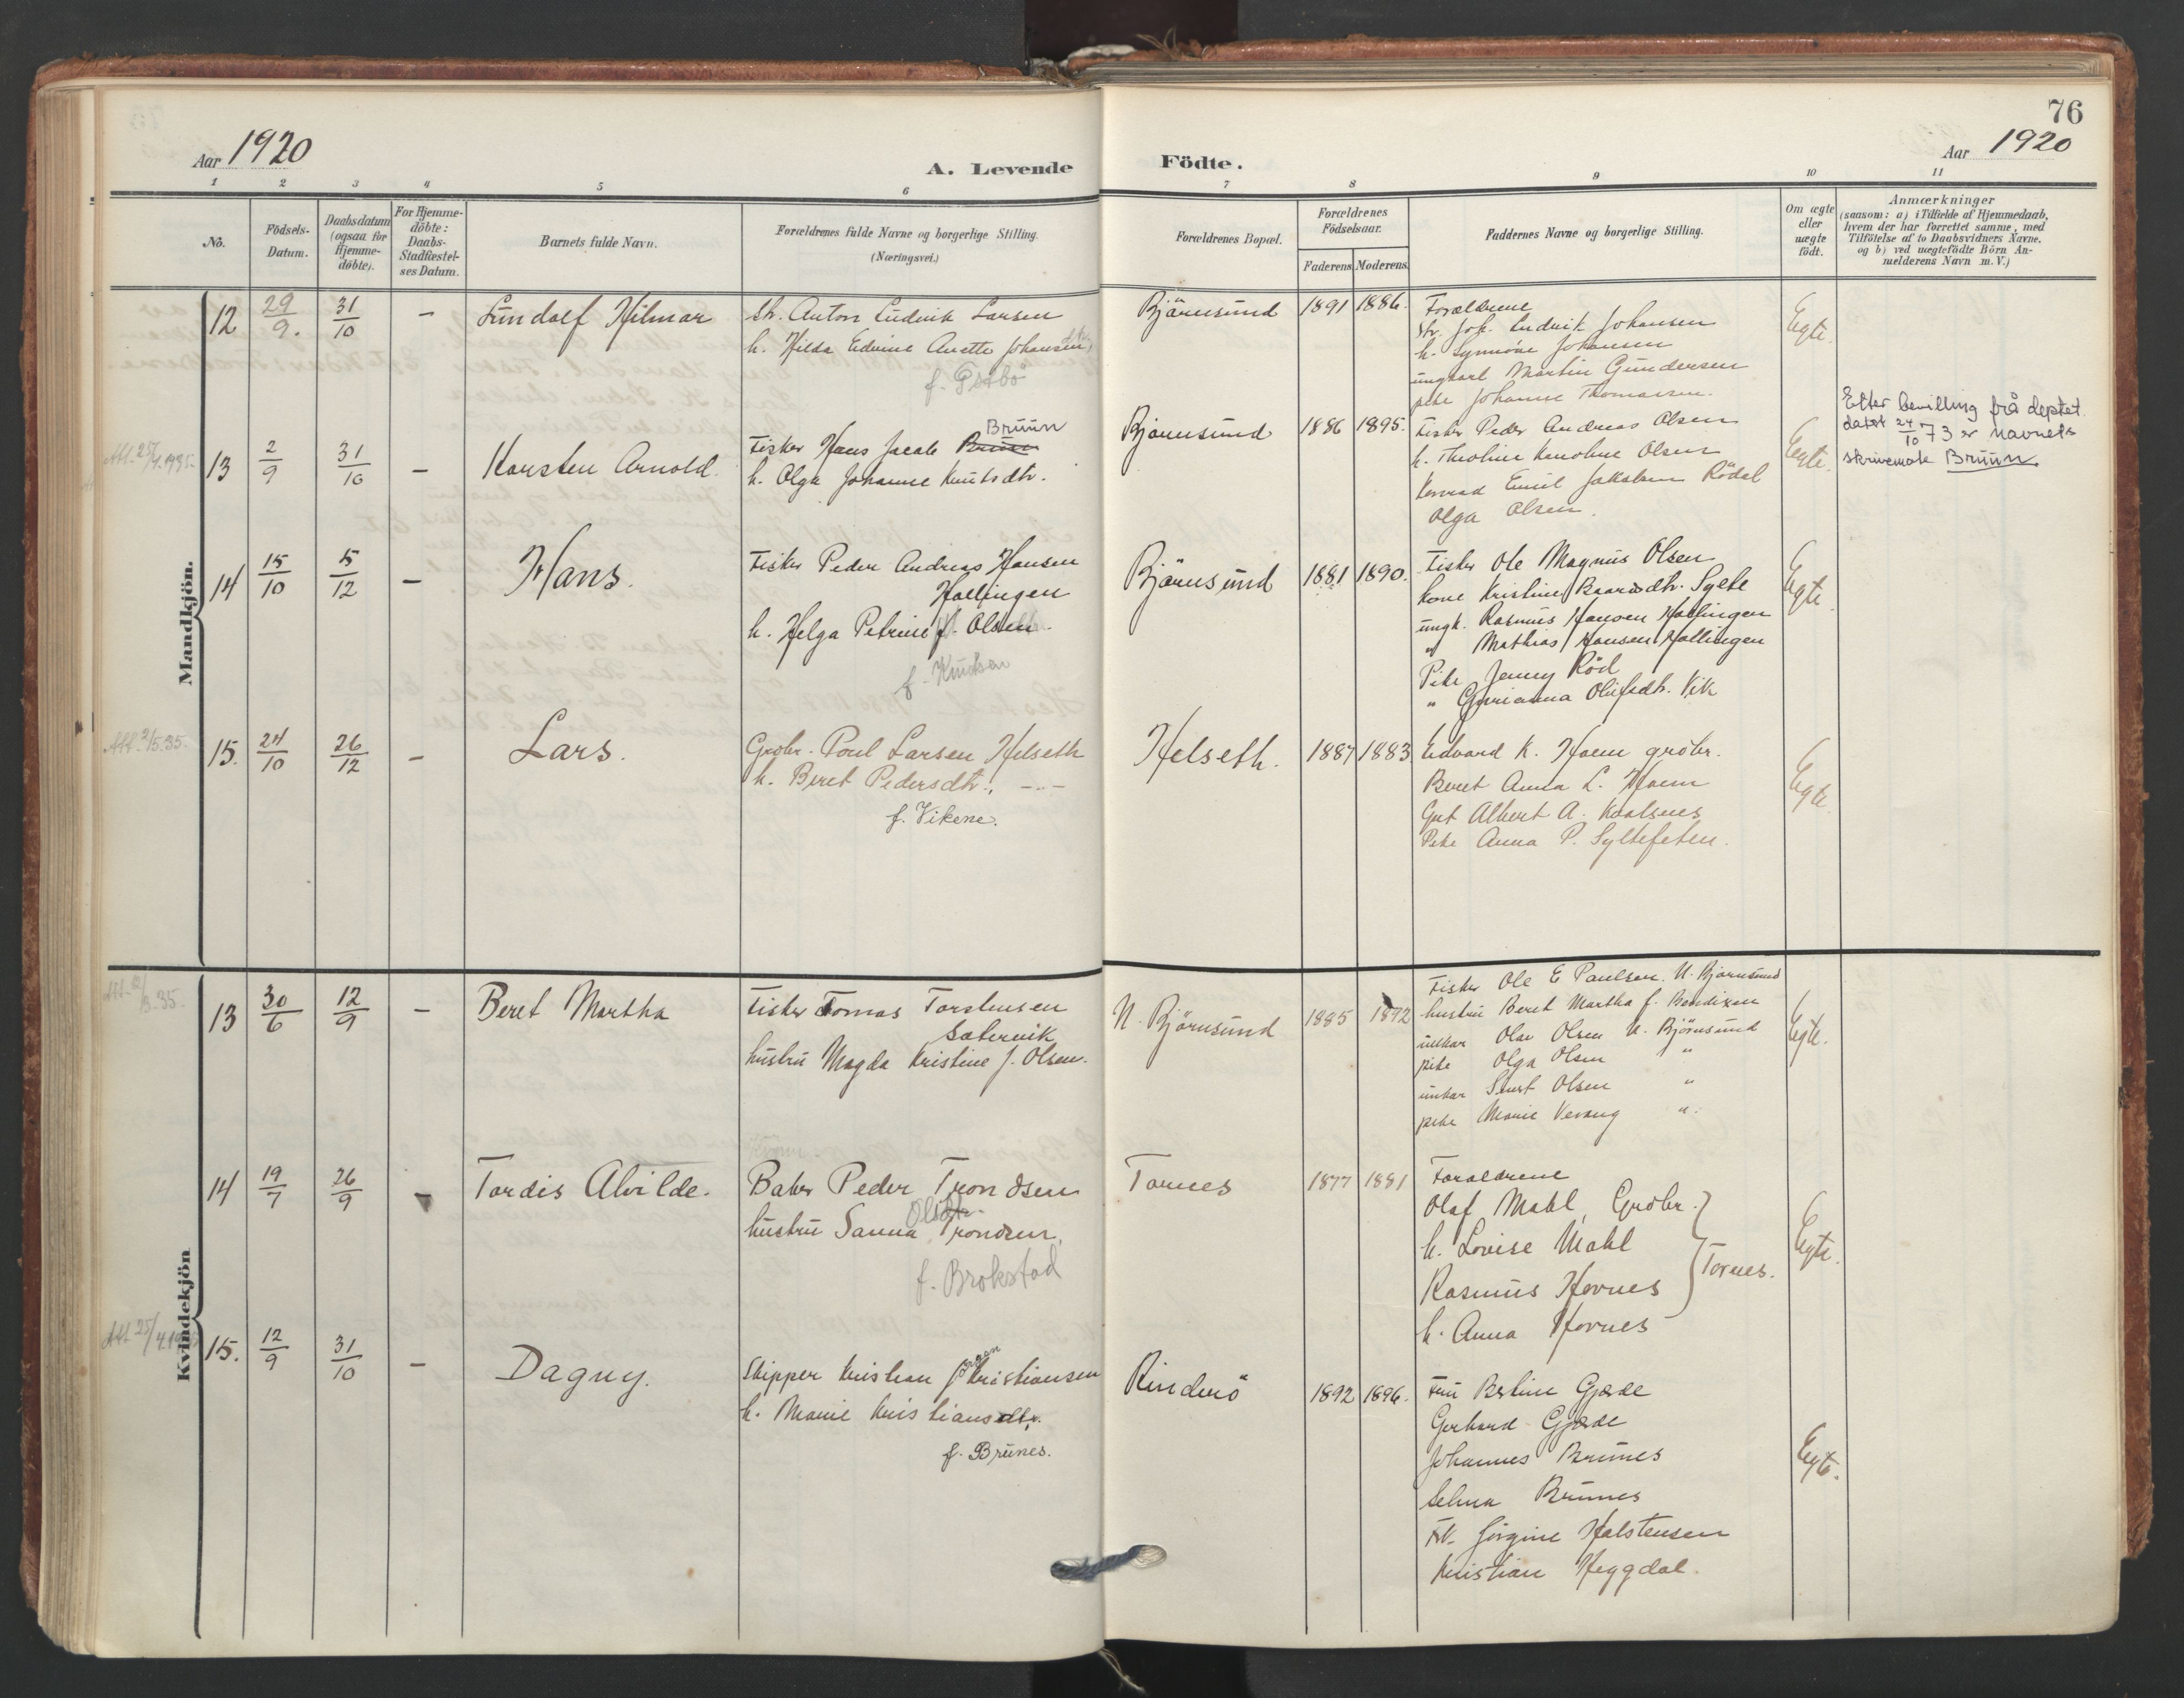 76
Aar 1920
A. Levende Födte.
Aar 1920
1 2 3 4 5 6 7 8 9 10 11
No.
Födsels-
Datum.
Daabsdatum
(ogsaa for
Hjemme-
döbte).
For Hjemme-
döbte:
Daabs-
Stadfæstel-
ses Datum.
Barnets fulde Navn.
Forældrenes fulde Navne og borgerlige Stilling.
(Næringsvei.)
Forældrenes Bopæl.
Forældrenes
Födselsaar.
Faderens Moderens
Faddernes Navne og borgerlige Stilling.
Om ægte
eller
uægte
födt.
Anmærkninger
(saasom: a) i Tilfælde af Hjemmedaab,
hvem der har forrettet samme, med
Tilföielse af to Daabsvidners Navne,
og b) ved uægtefödte Börn An-
melderens Navn m. V.)
Mandkjön.
12 29/9. 31/10 - Lundolf Hilmar
Str. Anton Ludvik Larsen
h. Hilda Edvine Anette Johansen
Björnsund 1891 1886.
Forældrene
Str. Joh. Ludvik Johansen
h. Synnöve Johansen
ungkarl Martin Gundersen
pike Johanne Thomassen.
Egte.
Att. 25/4 1935.
13 2/9 31/10 - Karsten Arnold.
Bruun
Fisker Hans Jacob Bruun
h. Olga Johanne Knutsdtr.
Bjørnsund 1886 1895.
Fisker Peder Andreas Olsen
h. Theoline Olsen
Konrad Emil Jakobsen Rödal
Olga Olsen.
Egte.
Etter bevilling frå deptet.
datert 24/10 73 er navnets
skrivemåte Bruun
14 15/10 5/12 - Hans.
Fisker Peder Andreas Hansen
Hallingen
h. Helga Petrine f. Olsen.
f. Knutsen
Björnsund 1881 1890.
Fisker Ole Magnus Olsen
kone Kristine Baardsdtr. Sylte
ungk. Rasmus Hansen Hallingen
" Mathias Hansen Hallingen
Pike Jenny Röd
" Gurianna Olufsdtr. Vik
Egte.
Att. 2/5.35.
15. 24/10 26/12 - Lars.
Grobr. Poul Larsen Helseth
h. Beret Pedersdtr., -..-
f. Vikene.
Helseth. 1887 1883
Edvard K. Hoem gröbr.
Beret Anna L. Hoem
Gut Albert A. Kaalsnes
Pike Anna P. Syltefeten.
Egte.
Kvindekjön
13 30/6 12/9 - Beret Martha
Fisker Tomas Torstensen
Satervik
hustru Magda Kristine f. Olsen.
N. Björnsund 1885 1892
Fisker Ole E Paulsen. N. Bjørnsund
hustru Beret Martha f. Bendixen
unkar Olav Olsen N. Björnsund
pike Olga Olsen "
unkar Olsen "
pike Marie Verang "
Egte.
14 19/7 26/9 - Tordis Alvilde.
Baker Peder Trondsen
hustru Sanna Trondsen.
f. Brokstad
Tornes 1877 1881
Forældrene
Olaf Mahl, Gröbr.
h. Lovise Mahl
Rasmus Hovnes Tornes.
h. Anna Hovnes
Egte.
15. 12/9 31/10 - Dagny.
Skipper Kristian Kristiansen
h. Marie Kristiansdtr.
f. Brünes.
Rinderö 1892 1896.
Fru Berline Gjærde
Gerhard Gjærde
Johannes Brünes
Selma Brünes
Frk. Jörgine Halstensen
Kristian Heggdal.
Egte.